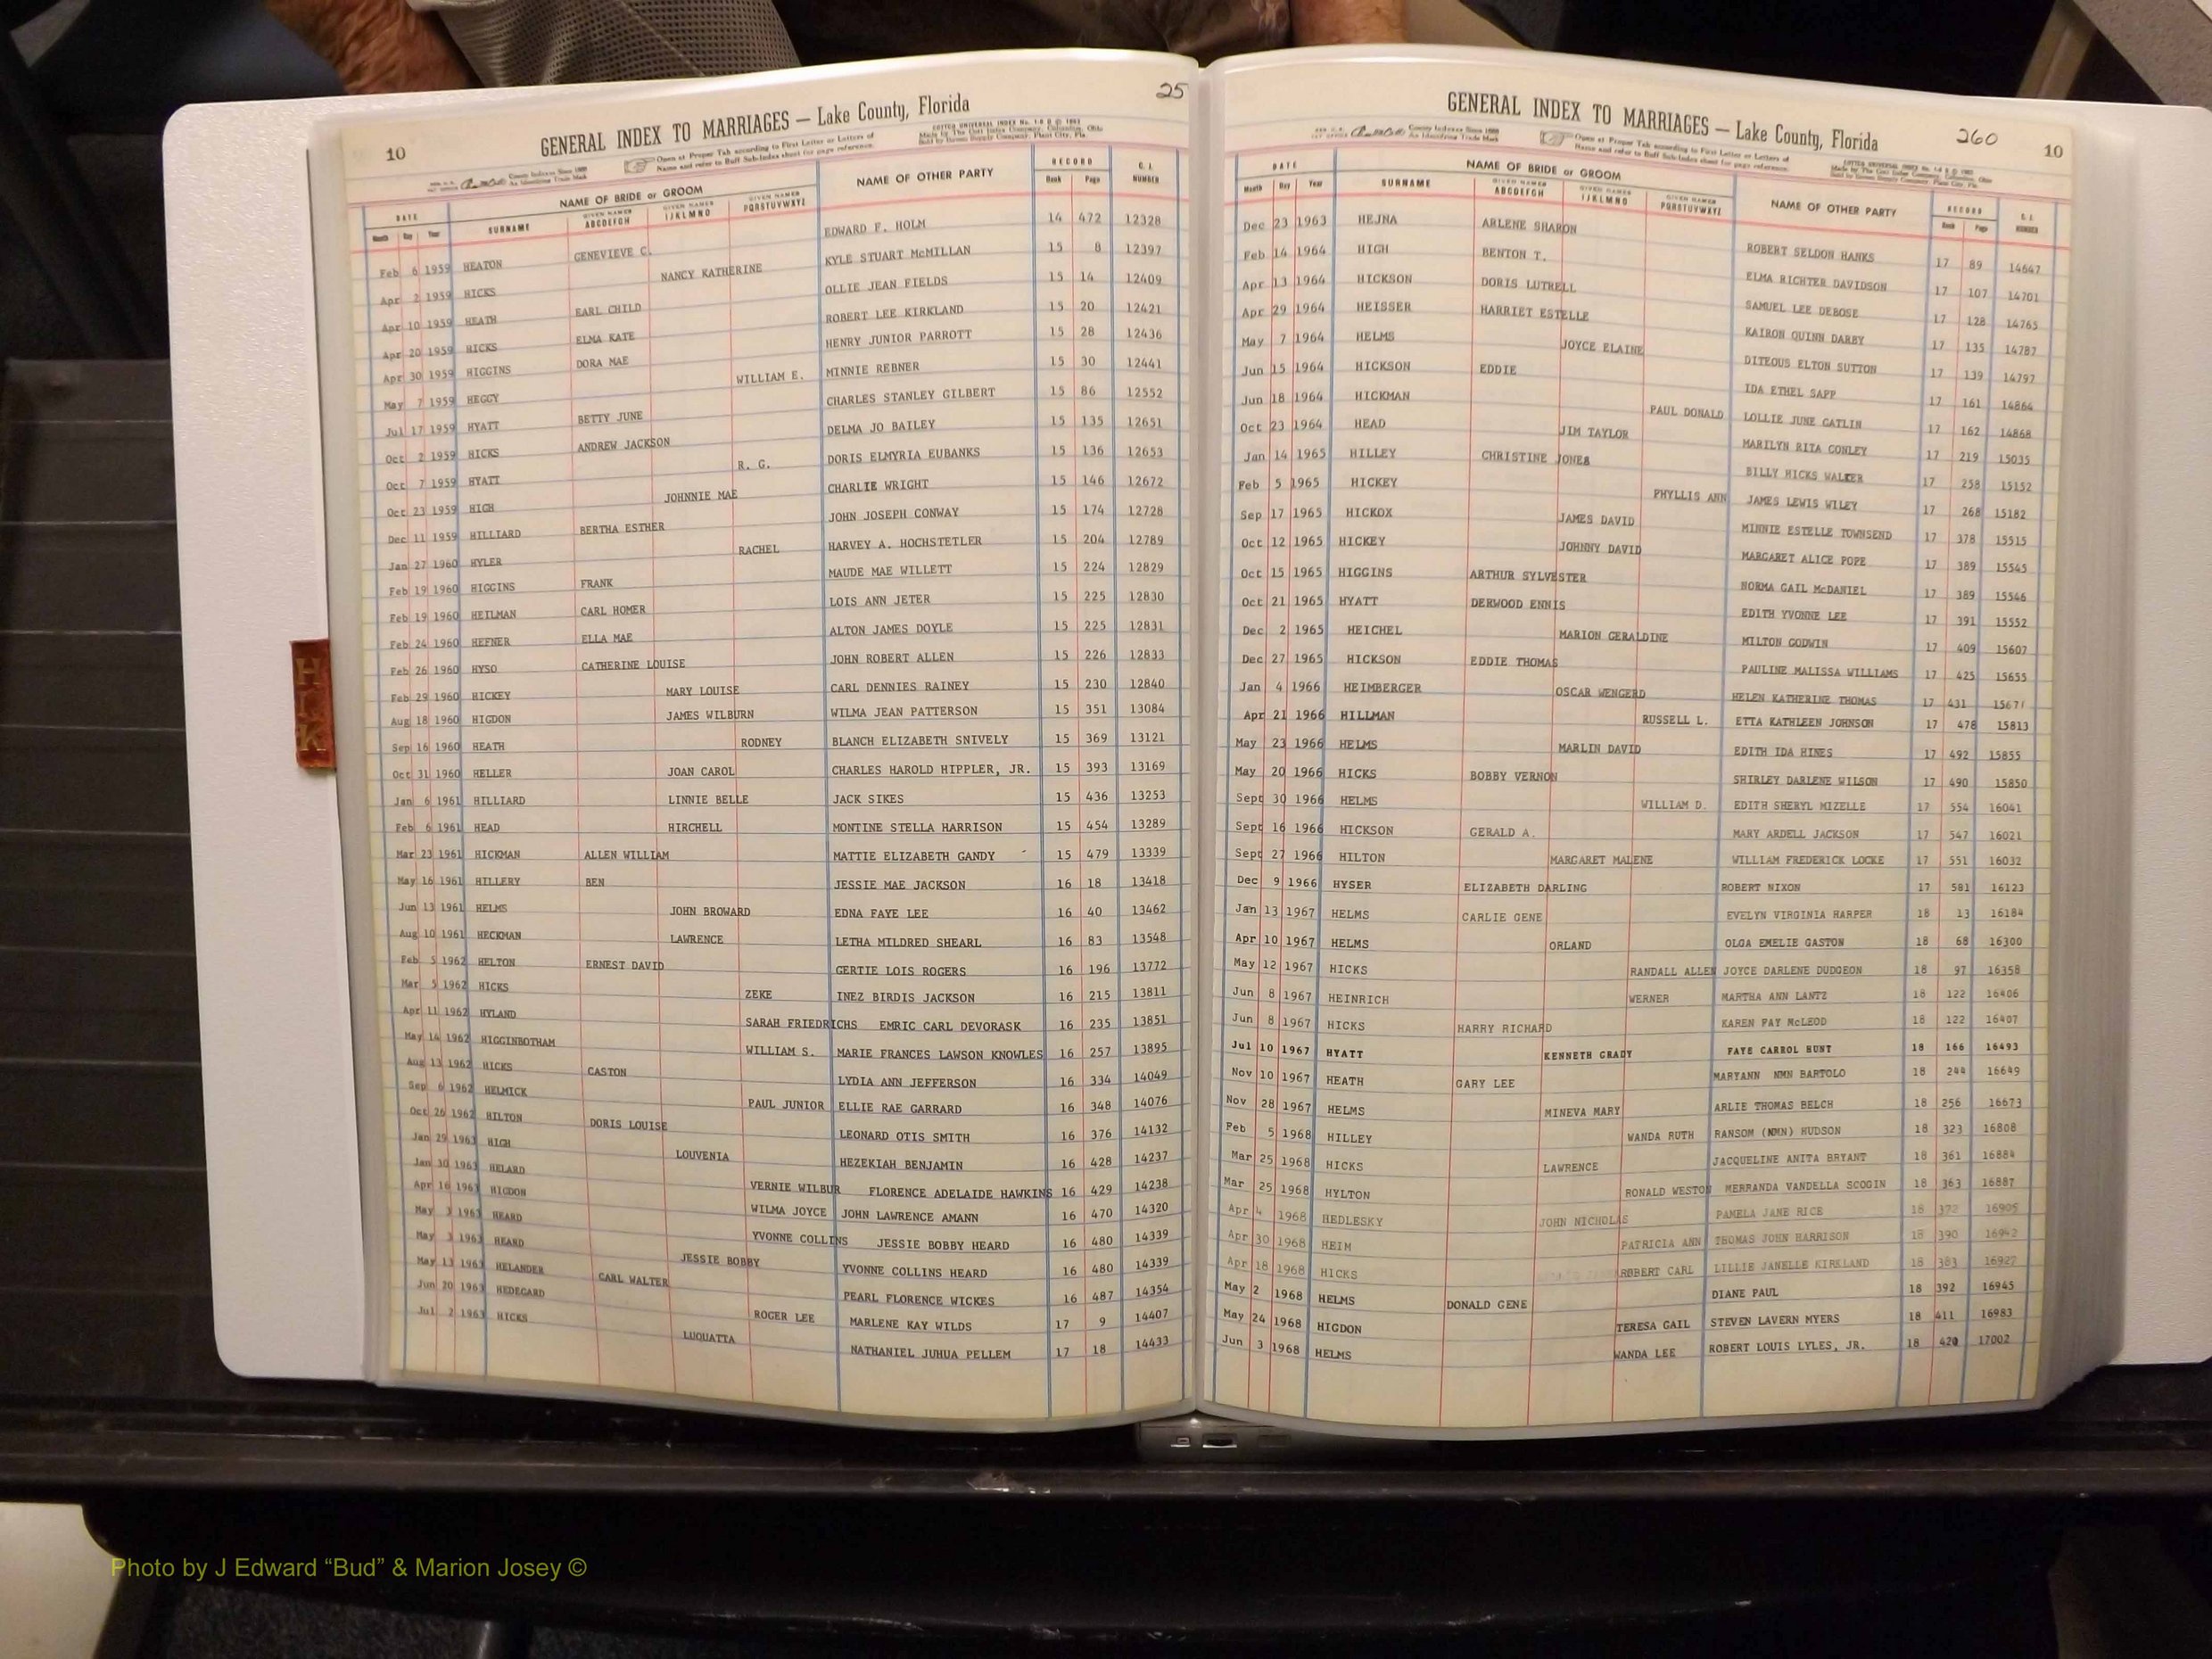 25
GENERAL INDEX TO MARRIAGES — Lake County, Florida
10
Open at Proper Tab according to First Letter or Letters of
Name and refer to Buff Sub-Index sheet for page reference.
DATE NAME OF BRIDE or GROOM NAME OF OTHER PARTY RECORD G. I. NUMBER
Month Day Year SURNAME GIVEN NAMES ABCDEFGH GIVEN NAMES IJKLMNO GIVEN NAMES PQRSTUVWXYZ Book Page
Feb 6 1959 HEATON GENEVIEVE C. EDWARD F. HOLM 14 472 12328
Apr 2 1959 HICKS NANCY KATHERINE KYLE STUART McMILLAN 15 8 12397
Apr 10 1959 HEATH EARL CHILD OLLIE JEAN FIELDS 15 14 12409
Apr 20 1959 HICKS ELMA KATE ROBERT LEE KIRKLAND 15 20 12421
Apr 30 1959 HIGGINS DORA MAE HENRY JUNIOR PARROTT 15 28 12436
May 7 1959 HEGGY WILLIAM E. MINNIE REBNER 15 30 12441
Jul 17 1959 HYATT BETTY JUNE CHARLES STANLEY GILBERT 15 86 12552
Oct 2 1959 HICKS ANDREW JACKSON DELMA JO BAILEY 15 135 12651
Oct 7 1959 HYATT R. G. DORIS ELMYRIA EUBANKS 15 136 12653
Oct 23 1959 HIGH JOHNNIE MAE CHARLIE WRIGHT 15 146 12672
Dec 11 1959 HILLIARD BERTHA ESTHER JOHN JOSEPH CONWAY 15 174 12728
Jan 27 1960 HYLER RACHEL HARVEY A. HOCHSTETLER 15 204 12789
Feb 19 1960 HIGGINS FRANK MAUDE MAE WILLETT 15 224 12829
Feb 19 1960 HEILMAN CARL HOMER LOIS ANN JETER 15 225 12830
Feb 24 1960 HEFNER ELLA MAE ALTON JAMES DOYLE 15 225 12831
Feb 26 1960 HYSO CATHERINE LOUISE JOHN ROBERT ALLEN 15 226 12833
Feb 29 1960 HICKEY MARY LOUISE CARL DENNIES RAINEY 15 230 12840
Aug 18 1960 HIGDON JAMES WILBURN WILMA JEAN PATTERSON 15 351 13084
Sep 16 1960 HEATH RODNEY BLANCH ELIZABETH SNIVELY 15 369 13121
Oct 31 1960 HELLER JOAN CAROL CHARLES HAROLD HIPPLER, JR. 15 393 13169
Jan 6 1961 HILLIARD LINNIE BELLE JACK SIKES 15 436 13253
Feb 6 1961 HEAD HIRCHELL MONTINE STELLA HARRISON 15 454 13289
Mar 23 1961 HICKMAN ALLEN WILLIAM MATTIE ELIZABETH GANDY 15 479 13339
May 16 1961 HILLERY BEN JESSIE MAE JACKSON 16 18 13418
Jun 13 1961 HELMS JOHN BROWARD EDNA FAYE LEE 16 40 13462
Aug 10 1961 HECKMAN LAWRENCE LETHA MILDRED SHEARL 16 83 13548
Feb 5 1962 HELTON ERNEST DAVID GERTIE LOIS ROGERS 16 196 13772
Mar 5 1962 HICKS ZEKE INEZ BIRDIS JACKSON 16 215 13811
Apr 11 1962 HYLAND SARAH FRIEDRICHS EMRIC CARL DEVORASK 16 235 13851
May 14 1962 HIGGINBOTHAM WILLIAM S. MARIE FRANCES LAWSON KNOWLES 16 257 13895
Aug 13 1962 HICKS CASTON LYDIA ANN JEFFERSON 16 334 14049
Sep 6 1962 HELMICK PAUL JUNIOR ELLIE RAE GARRARD 16 348 14076
Oct 26 1962 HILTON DORIS LOUISE LEONARD OTIS SMITH 16 376 14132
Jan 29 1963 HIGH LOUVENIA HEZEKIAH BENJAMIN 16 428 14237
Jan 30 1963 HELARD VERNIE WILBUR FLORENCE ADELAIDE HAWKINS 16 429 14238
Apr 16 1963 HIGDON WILMA JOYCE JOHN LAWRENCE AMANN 16 470 14320
May 3 1963 HEARD YVONNE COLLINS JESSIE BOBBY HEARD 16 480 14339
May 3 1963 HEARD JESSIE BOBBY YVONNE COLLINS HEARD 16 480 14339
May 13 1963 HELANDER CARL WALTER PEARL FLORENCE WICKES 16 487 14354
Jun 20 1963 HEDEGARD ROGER LEE MARLENE KAY WILDS 17 9 14407
Jul 2 1963 HICKS LUQUATTA NATHANIEL JUHUA PELLEM 17 18 14433
GENERAL INDEX TO MARRIAGES — Lake County, Florida
260
10
Open at Proper Tab according to First Letter or Letters of
Name and refer to Buff Sub-Index sheet for page reference.
DATE NAME OF BRIDE or GROOM NAME OF OTHER PARTY RECORD G. I. NUMBER
Month Day Year SURNAME GIVEN NAMES ABCDEFGH GIVEN NAMES IJKLMNO GIVEN NAMES PQRSTUVWXYZ Book Page
Dec 23 1963 HEJNA ARLENE SHARON ROBERT SELDON HANKS 17 89 14647
Feb 14 1964 HIGH BENTON T. ELMA RICHTER DAVIDSON 17 107 14701
Apr 13 1964 HICKSON DORIS LUTRELL SAMUEL LEE DEBOSE 17 128 14765
Apr 29 1964 HEISSER HARRIET ESTELLE KAIRON QUINN DARBY 17 135 14787
May 7 1964 HELMS JOYCE ELAINE DITEOUS ELTON SUTTON 17 139 14797
Jun 15 1964 HICKSON EDDIE IDA ETHEL SAPP 17 161 14864
Jun 18 1964 HICKMAN PAUL DONALD LOLLIE JUNE CATLIN 17 162 14868
Oct 23 1964 HEAD JIM TAYLOR MARILYN RITA CONLEY 17 219 15035
Jan 14 1965 HILLEY CHRISTINE JONES BILLY HICKS WALKER 17 258 15152
Feb 5 1965 HICKEY PHYLLIS ANN JAMES LEWIS WILEY 17 268 15182
Sep 17 1965 HICKOX JAMES DAVID MINNIE ESTELLE TOWNSEND 17 378 15515
Oct 12 1965 HICKEY JOHNNY DAVID MARGARET ALICE POPE 17 389 15545
Oct 15 1965 HIGGINS ARTHUR SYLVESTER NORMA GAIL McDANIEL 17 389 15546
Oct 21 1965 HYATT DERWOOD ENNIS EDITH YVONNE LEE 17 391 15552
Dec 2 1965 HEICHEL MARION GERALDINE MILTON GODWIN 17 409 15607
Dec 27 1965 HICKSON EDDIE THOMAS PAULINE MALISSA WILLIAMS 17 425 15655
Jan 4 1966 HEIMBERGER OSCAR WENGERD HELEN KATHERINE THOMAS 17 431 15671
Apr 21 1966 HILLMAN RUSSELL L. ETTA KATHLEEN JOHNSON 17 478 15813
May 23 1966 HELMS MARLIN DAVID EDITH IDA HINES 17 492 15855
May 20 1966 HICKS BOBBY VERNON SHIRLEY DARLENE WILSON 17 490 15850
Sept 30 1966 HELMS WILLIAM D. EDITH SHERYL MIZELLE 17 554 16041
Sept 16 1966 HICKSON GERALD A. MARY ARDELL JACKSON 17 547 16021
Sept 27 1966 HILTON MARGARET MALENE WILLIAM FREDERICK LOCKE 17 551 16032
Dec 9 1966 HYSER ELIZABETH DARLING ROBERT NIXON 17 581 16123
Jan 13 1967 HELMS CARLIE GENE EVELYN VIRGINIA HARPER 18 13 16184
Apr 10 1967 HELMS ORLAND OLGA EMELIE GASTON 18 68 16300
May 12 1967 HICKS RANDALL ALLEN JOYCE DARLENE DUDGEON 18 97 16358
Jun 8 1967 HEINRICH WERNER MARTHA ANN LANTZ 18 122 16406
Jun 8 1967 HICKS HARRY RICHARD KAREN FAY McLEOD 18 122 16407
Jul 10 1967 HYATT KENNETH GRADY FAYE CARROL HUNT 18 166 16493
Nov 10 1967 HEATH GARY LEE MARYANN NMN BARTOLO 18 244 16649
Nov 28 1967 HELMS MINEVA MARY ARLIE THOMAS BELCH 18 256 16673
Feb 5 1968 HILLEY WANDA RUTH RANSOM (NMN) HUDSON 18 323 16808
Mar 25 1968 HICKS LAWRENCE JACQUELINE ANITA BRYANT 18 361 16884
Mar 25 1968 HYLTON RONALD WESTON MERRANDA VANDELLA SCOGIN 18 363 16887
Apr 4 1968 HEDLESKY JOHN NICHOLAS PAMELA JANE RICE 18 372 16905
Apr 30 1968 HEIM PATRICIA ANN THOMAS JOHN HARRISON 18 390 16942
Apr 18 1968 HICKS ROBERT CARL LILLIE JANELLE KIRKLAND 18 383 16927
May 2 1968 HELMS DONALD GENE DIANE PAUL 18 392 16945
May 24 1968 HIGDON TERESA GAIL STEVEN LAVERN MYERS 18 411 16983
Jun 3 1968 HELMS WANDA LEE ROBERT LOUIS LYLES, JR. 18 420 17002
H
K
Photo by J Edward “Bud” & Marion Josey ©